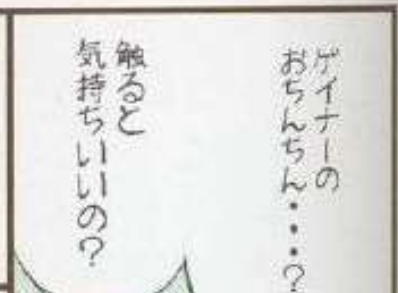 ゲイナーの
おちんちん・・・?
触ると
気持ちいいの?